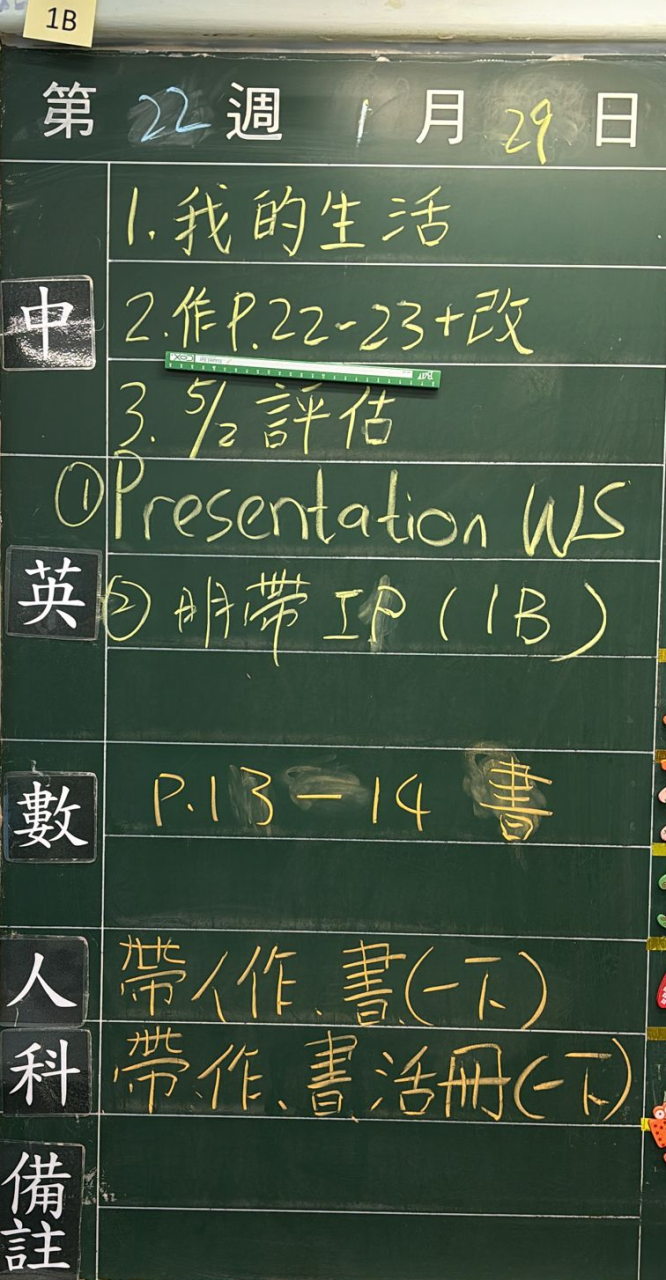 1B
第 22 週 1 月 29 日
中
1. 我的生活
2. 作P.22-23+改
3. 5/2 評估
英
① Presentation WS
② 明帶 IP (1B)
數
P.13-14 書
人
帶人作、書(一下)
科
帶作、書、活冊(一下)
備註